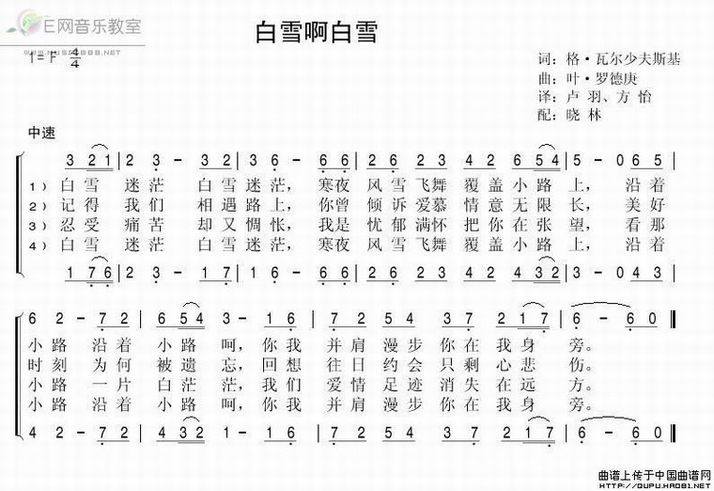 E网音乐教室
白雪啊白雪
1= F 4/4
词：格·瓦尔少夫斯基
曲：叶·罗德庚
译：卢 羽、方 怡
配：晓 林
中速
3 2 1 | 2 3 - 3 2 | 1 6 3 - 6 6 | 6 2 3 2 3 | 4 2 2 6 5 4 | 5 - 0 6 5 |
1）白雪 迷茫 白雪迷茫，寒夜 风雪飞舞 覆盖小路 上， 沿着
2）记得 我们 相遇路上，你曾 倾诉爱慕 情意无限 长， 美好
3）忍受 痛苦 却又惆怅，我是 忧郁满怀 把你在张 望， 看那
4）白雪 迷茫 白雪迷茫，寒夜 风雪飞舞 覆盖小路 上， 沿着
1 7 6 | 2 3 - 1 7 | 1 6 3 - 6 6 | 6 2 3 2 3 | 4 2 2 4 3 2 | 3 - 0 4 3 |
6 2 - 7 2 | 6 5 4 3 - 1 6 | 3 - 7 2 | 3 3 7 2 1 7 | 6 - 6 0
小路 沿着 小路 呵，你我 并肩漫步你在我身 旁。
时刻 为何 被遗 忘，回想 往日约会只剩心悲 伤。
小路 一片 白茫 茫，我们 爱情足迹消失在远 方。
小路 沿着 小路 呵，你我 并肩漫步你在我身 旁。
4 2 - 7 2 | 4 3 2 1 - 1 6 | 3 - 7 2 | 3 3 7 2 1 7 | 6 - 6 0
曲谱上传于中国曲谱网
HTTP://QUPU.HAO81.NET